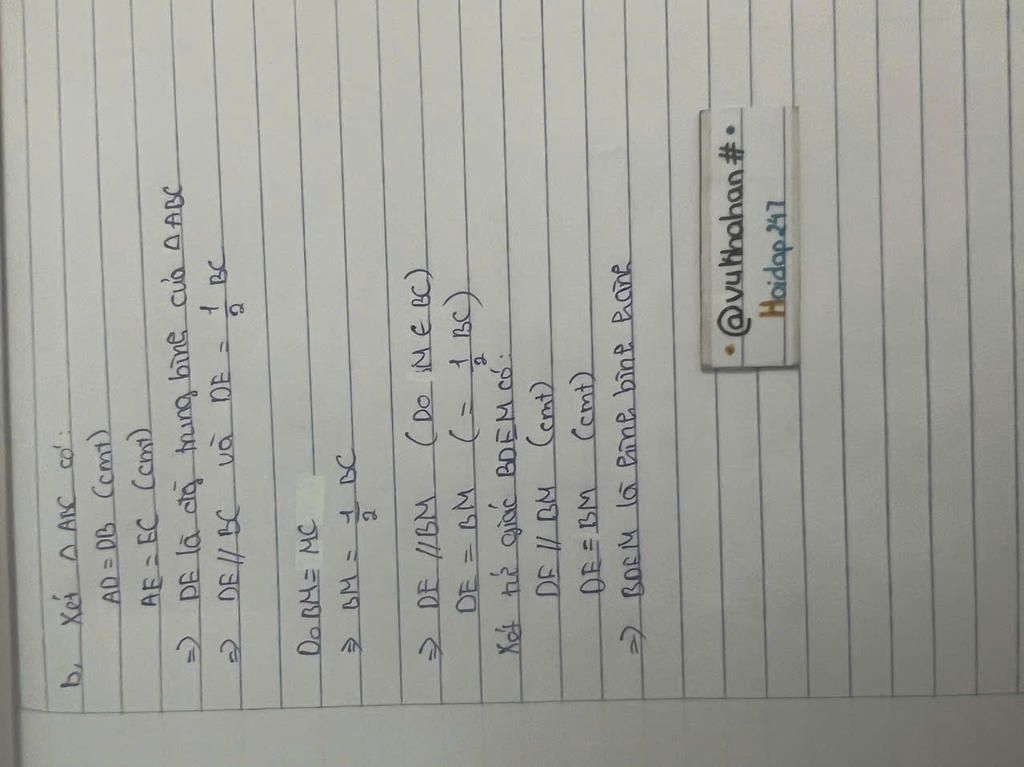 b, Xét △ ABC có:
AD = DB (cmt)
AE = EC (cmt)
=> DE là đg trung bình của △ ABC
=> DE // BC và DE = 1/2 BC
Do BM = MC
=> BM = 1/2 BC
=> DE // BM (Do M ∈ BC)
DE = BM (= 1/2 BC)
Xét tứ giác BDEM có:
DE // BM (cmt)
DE = BM (cmt)
=> BDEM là hình bình hành
• @vukhahan# •
Hoidap247